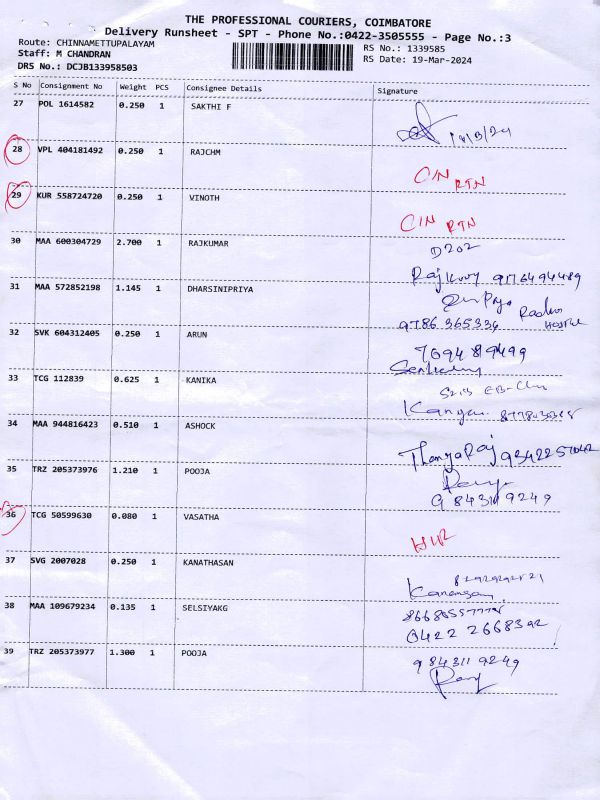 THE PROFESSIONAL COURIERS, COIMBATORE
Delivery Runsheet - SPT - Phone No.:0422-3505555 - Page No.:3
Route: CHINNAMETTUPALAYAM
RS No.: 1339585
Staff: M CHANDRAN
RS Date: 19-Mar-2024
DRS No.: DCJB133958503
S No Consignment No Weight PCS Consignee Details Signature
27 POL 1614582 0.250 1 SAKTHI F
28 VPL 404181492 0.250 1 RAJCHM
CIN RTN
29 KUR 558724720 0.250 1 VINOTH
CIN RTN
30 MAA 600304729 2.700 1 RAJKUMAR
D202
31 MAA 572852198 1.145 1 DHARSINIPRIYA
9786 365336
32 SVK 604312405 0.250 1 ARUN
7094 89499
33 TCG 112839 0.625 1 KANIKA
34 MAA 944816423 0.510 1 ASHOCK
ThangaRaj
35 TRZ 205373976 1.210 1 POOJA
9843119249
36 TCG 50599630 0.080 1 VASATHA
37 SVG 2007028 0.250 1 KANATHASAN
38 MAA 109679234 0.135 1 SELSIYAKG
0422 2668392
39 TRZ 205373977 1.300 1 POOJA
984311 9249